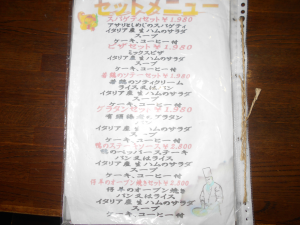 セットメニュー
スパゲティセット ¥1,980
アサリとしめじのスパゲティ
イタリア産生ハムのサラダ
スープ
ケーキ、コーヒー付
ピザセット ¥1,980
ミックスピザ
イタリア産生ハムのサラダ
スープ
ケーキ、コーヒー付
若鶏のソテーセット ¥1,980
若鶏のソティクリーム
ライス又はパン
イタリア産生ハムのサラダ
スープ
ケーキ、コーヒー付
グラタンセット
有頭海老
グラタン
イタリア産生ハムのサラダ
スープ
ケーキ、コーヒー付
ステーキ
パン又はライス
イタリア産生ハムのサラダ
スープ
ケーキ、コーヒー付
仔羊のオーブン焼きセット
仔羊のオーブン焼き
パン又はライス
イタリア産生ハムのサラダ
スープ
ケーキ、コーヒー付